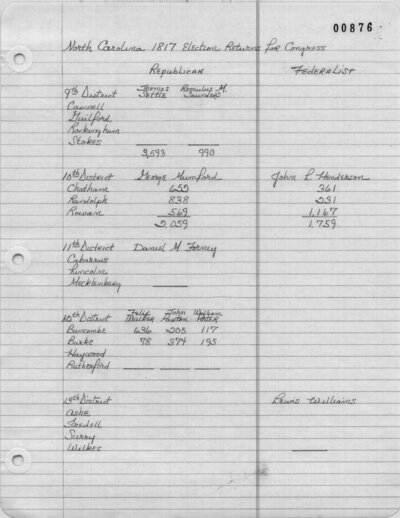 00876
North Carolina 1817 Election Returns for Congress
Republican Federalist
9th District Thomas Settle Romulus M. Saunders
Caswell
Guilford
Rockingham
Stokes
3,593 990
10th District George Mumford John L. Henderson
Chatham 652 361
Randolph 838 231
Rowan 569 1,167
2,059 1,759
11th District Daniel M. Forney
Cabarrus
Lincoln
Mecklenberg
12th District Felix Walker John Paxton William
Buncombe 636 205 117
Burke 78 374 195
Haywood
Rutherford
13th District Lewis Williams
Ashe
Iredell
Surry
Wilkes